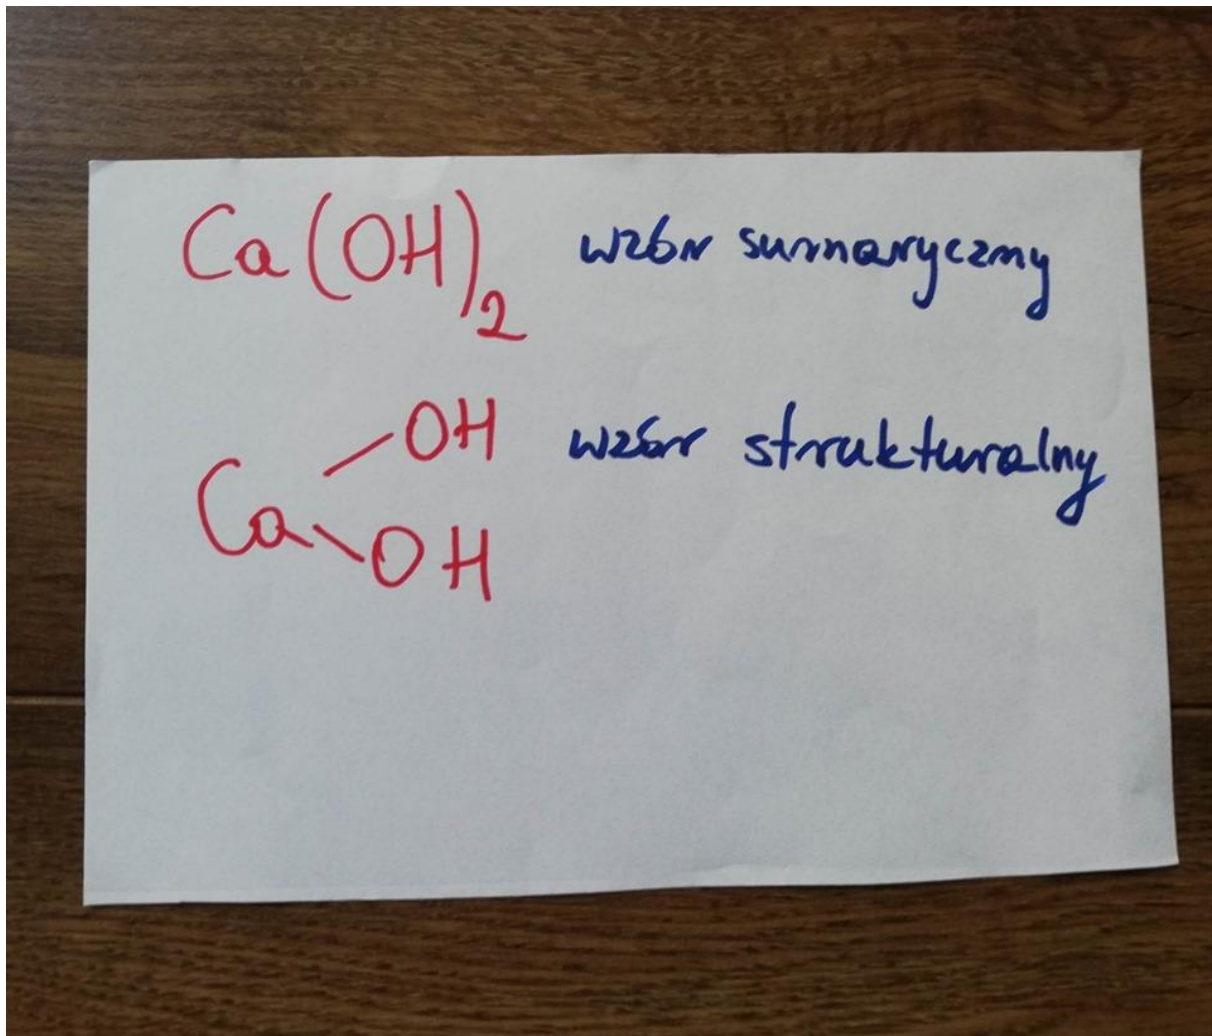 Ca(OH)₂ wzór sumaryczny
OH wzór strukturalny
Ca
OH